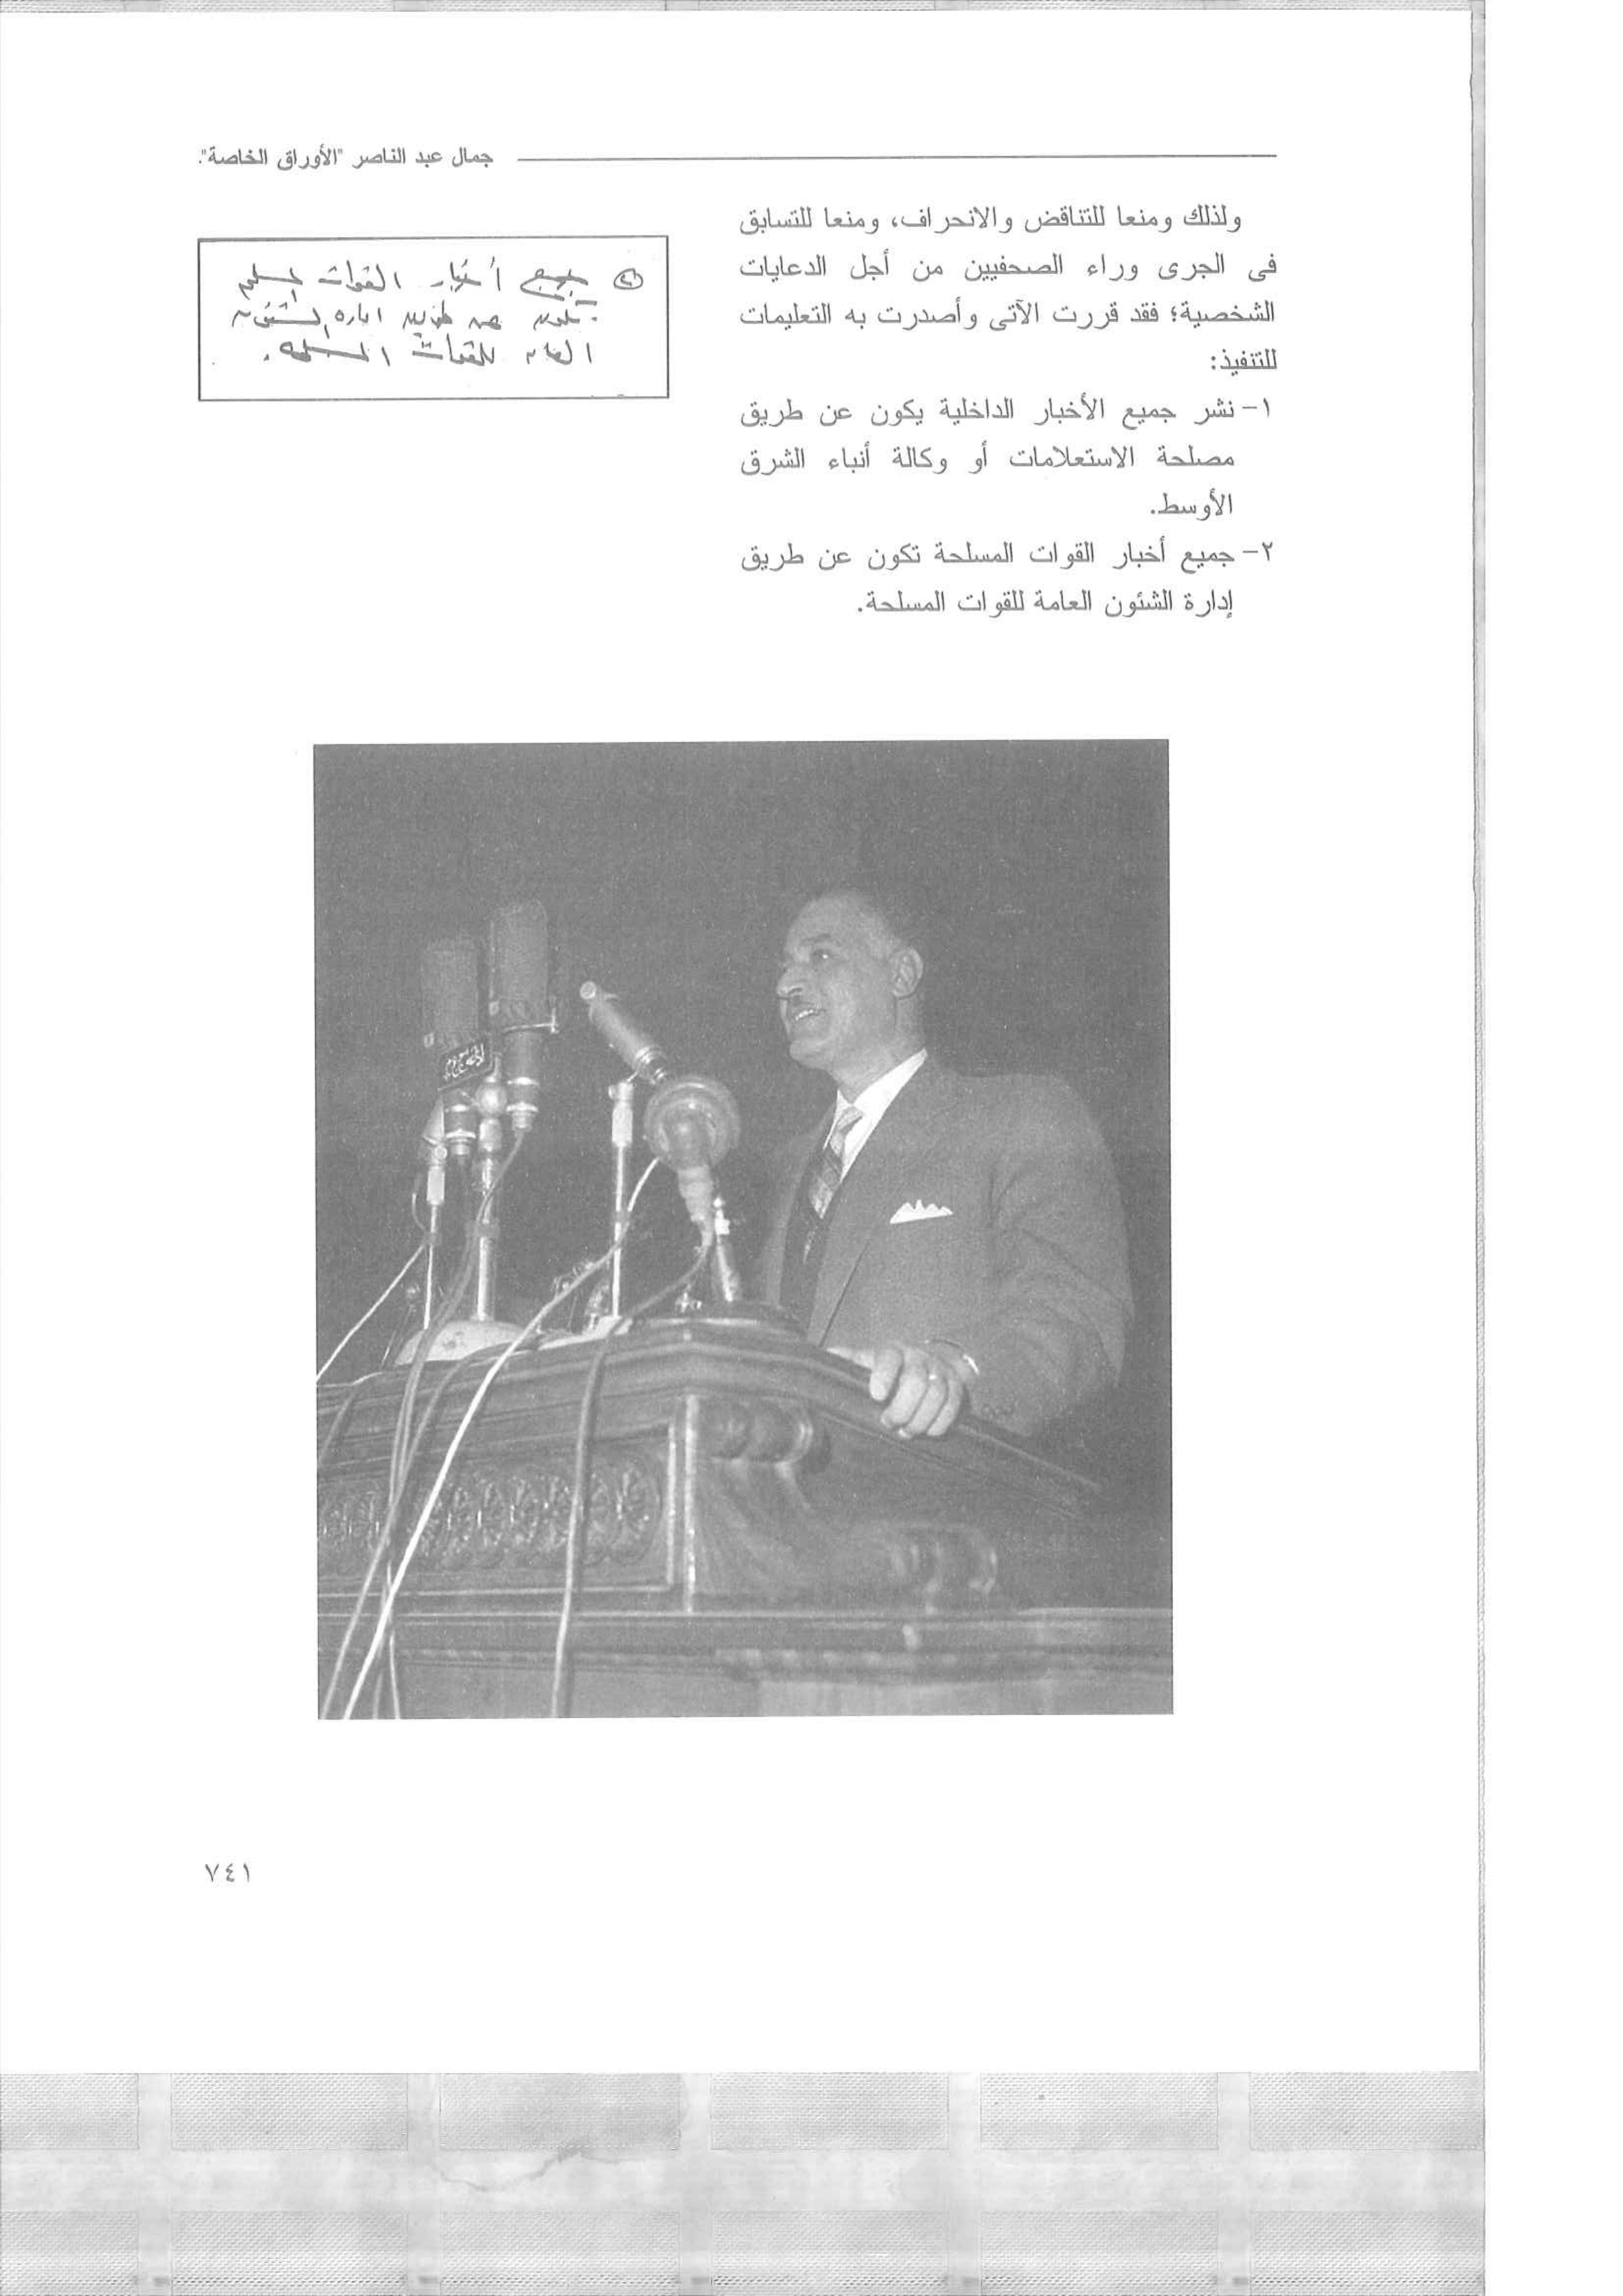 جمال عبد الناصر "الأوراق الخاصة".
ولذلك ومنعا للتناقض والانحراف، ومنعا للتسابق
فى الجرى وراء الصحفيين من أجل الدعايات
الشخصية؛ فقد قررت الآتى وأصدرت به التعليمات
للتنفيذ:
١- نشر جميع الأخبار الداخلية يكون عن طريق
مصلحة الاستعلامات أو وكالة أنباء الشرق
الأوسط.
٢- جميع أخبار القوات المسلحة تكون عن طريق
إدارة الشئون العامة للقوات المسلحة.
٢ جميع أخبار القوات المسلحه
تكون عن طريق اداره الشئون
العامه للقوات المسلحه.
٧٤١